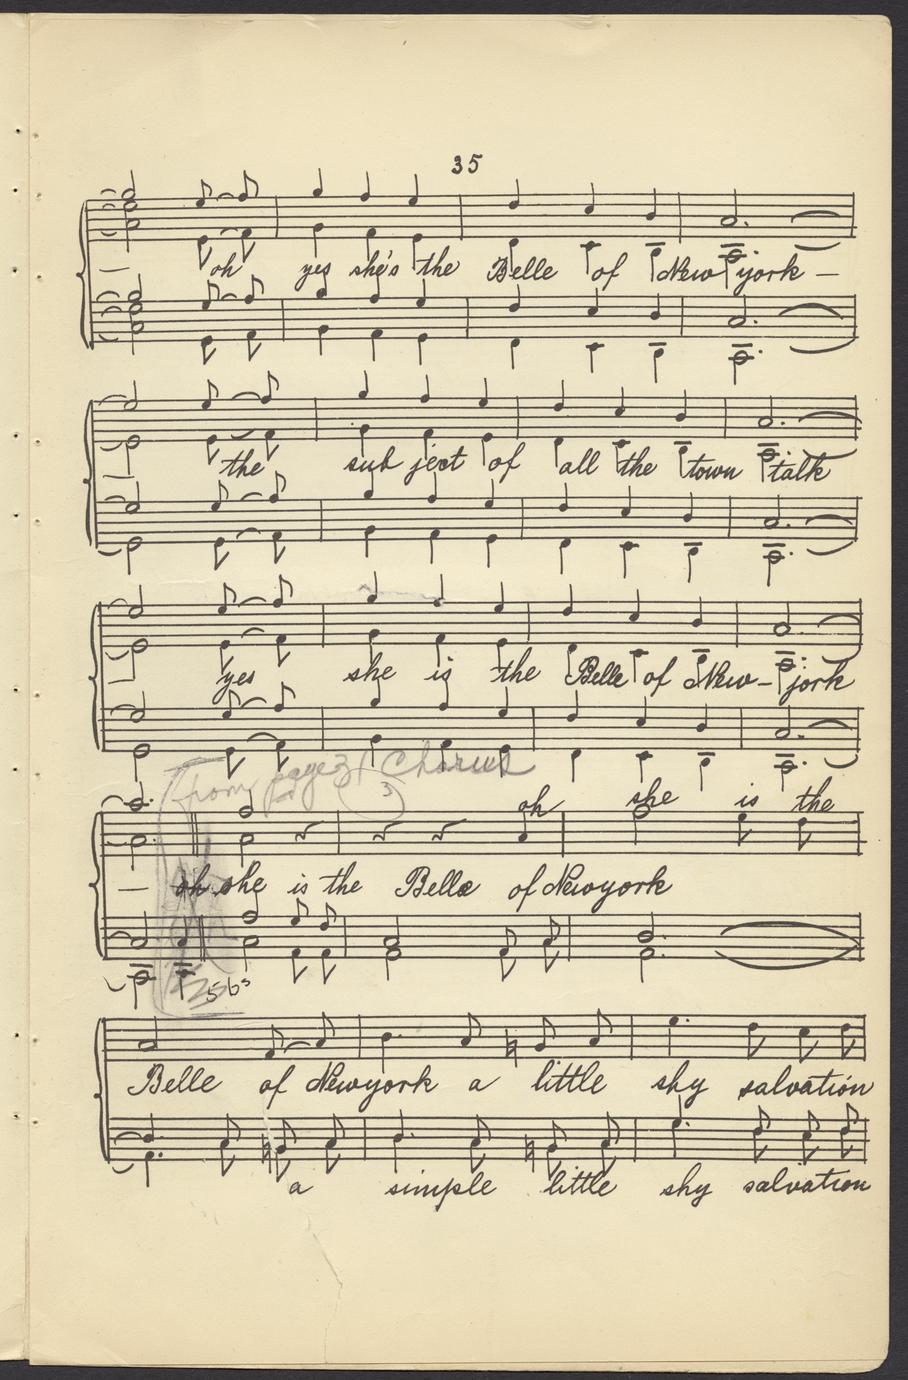 35
— oh yes she's the Belle of New york —
— the sub ject of all the town talk
— yes she is the Belle of New - york
from page 3 Chorus
3
oh she is the
— oh she is the Belle of Newyork
Belle of Newyork a little shy salvation
a simple little shy salvation